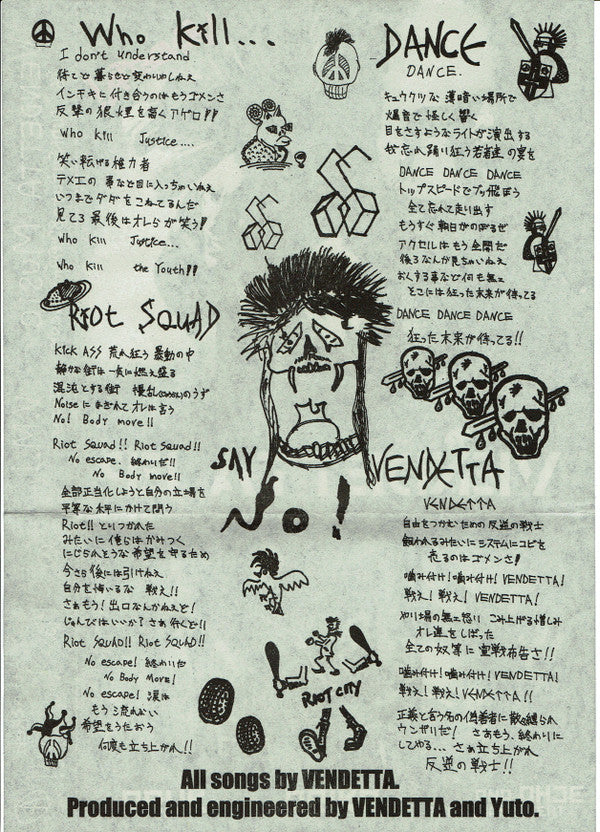 Who Kill...
I don't understand
待てど暮らせど変わりゃしねえ
インチキに付き合うのはもうゴメンさ
反撃の狼煙を
Who Kill Justice....
笑い転げる権力者
テメエの事など目に入っちゃいねえ
いつまでダダをこねてるんだ
見てろ最後はオレらが笑う!
Who Kill Justice...
Who Kill the Youth!!
RIOt SQUAD
KICK ASS 荒れ狂う暴動の中
静かな街は一気に燃え盛る
混沌とする街 のうず
Noiseにまぎれてオレは言う
No! Body move!!
Riot Squad!! Riot Squad!!
No escape. 終わりだ!!
No Body move!!
全部正当化しようと自分の立場を
平等な水平にかけて闘う
Riot!! とりつかれた
みたいに俺らはかみつく
にじられそうな希望を守るため
今さら後には引けねえ
自分を悔いるな 戦え!!
さぁもう! 出口なんかねえと!
じゅんびはいいか? さあ行くぞ!!
Riot SQuAD!! Riot SQuAD!!
No escape! 終わりだ
No Body Move!
No escape! 涙は
もう流れない
希望をうたおう
何度も立ち上がれ!!
DANCE
DANCE.
キュウクツな薄暗い場所で
爆音で怪しく響く
目をさすようなライトが演出する
我忘れ踊り狂う若者達の宴を
DANCE DANCE DANCE
トップスピードでブッ飛ぼう
全て忘れて走り出す
もうすぐ朝日がのぼるぜ
アクセルはもう全開だ
後ろなんか見ちゃいねえ
おくする事など何も無え
そこには狂った未来が待ってる
DANCE DANCE DANCE
狂った未来が待ってる!!
SAY
No!
VENDETTA
VENDETTA
自由をつかむための反逆の戦士
飼われるみたいにシステムにコビを
売るのはゴメンさ!
噛み付け!噛み付け! VENDETTA!
戦え! 戦え! VENDETTA!
やり場の無え怒い こみ上げる憎しみ
オレ達をしばった
全ての奴等に宣戦布告さ!!
噛み付け!噛み付け! VENDETTA!
戦え! 戦え! VENDETTA!!
正義と言う名の偽善者に散々縛られ
ウンザリだ! さあもう、終わりに
してやる... さぁ立ち上がれ
反逆の戦士!!
RIOT CITY
All songs by VENDETTA.
Produced and engineered by VENDETTA and Yuto.